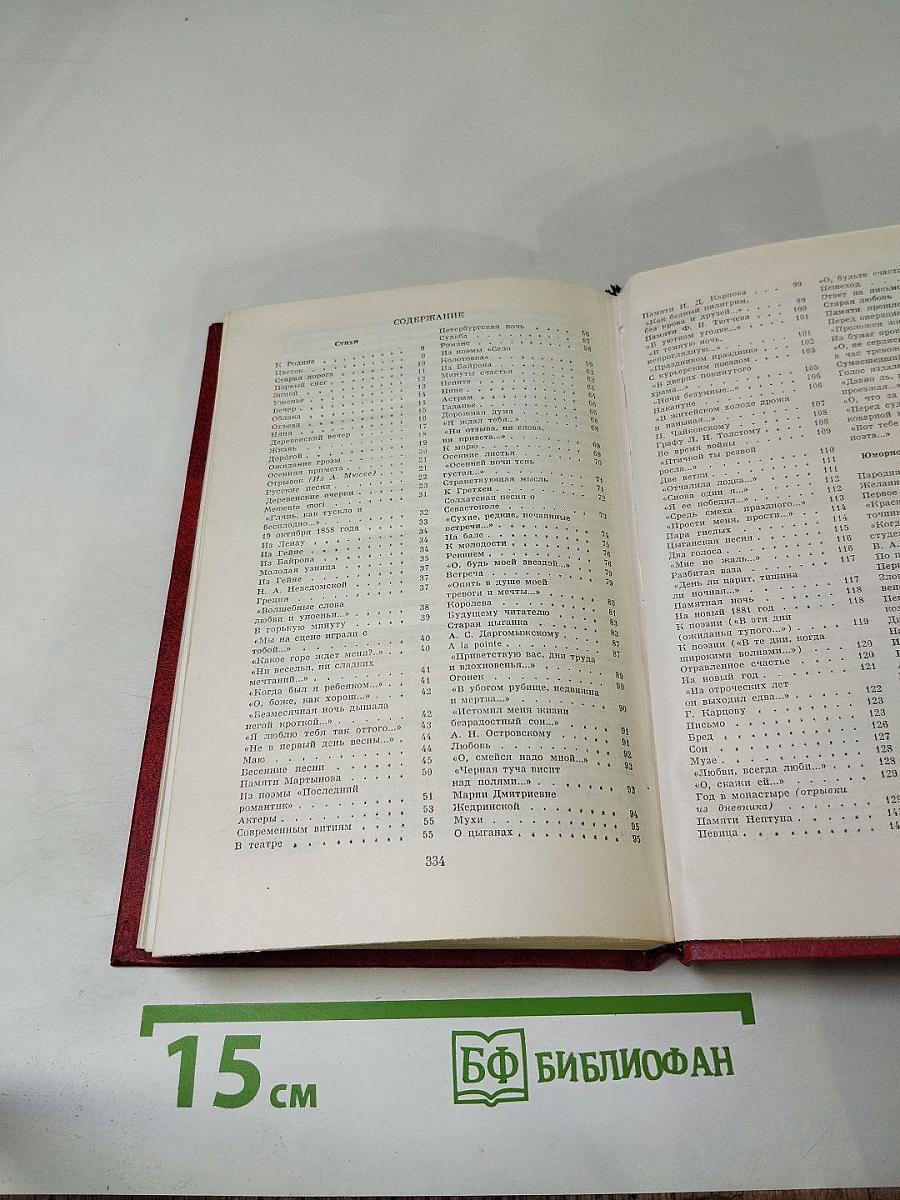 СОДЕРЖАНИЕ
Стихи
К Родине . . . 9
Цветок . . . 9
Старая дорога . . . 11
Первый снег . . . 12
Зимой . . . 13
Ужение . . . 14
Вечер . . . 14
Облака . . . 15
Отъезд . . . 16
Няня . . . 17
Деревенский вечер . . . 18
Жизнь . . . 19
Дорогой . . . 20
Ожидание грозы . . . 21
Осенняя примета . . . 21
Отрывок (Из А. Мюссе) . . . 22
Русские песни . . . 23
Деревенские очерки . . . 31
Memento mori . . .
«Глянь, как тускло и
бесплодно...» . . . 32
19 октября 1858 года . . . 33
Из Ленау . . . 34
Из Гейне . . . 34
Из Байрона . . . 34
Молодая узница . . . 35
Из Гейне . . . 37
Н. А. Неведомской . . . 37
Греция . . . 37
«Волшебные слова
любви и упоенья...» . . . 38
В горькую минуту . . . 39
«Мы на сцене играли с
тобой...» . . . 40
«Какое горе ждет меня?..» . . 40
«Ни веселья, ни сладких
мечтаний...» . . . 41
«Когда был я ребенком...» . . 41
«О, боже, как хорош...» . . 42
«Безмесячная ночь дышала
негой кроткой...» . . . 42
«Я люблю тебя так оттого...» 43
«Не в первый день весны...» . 44
Маю . . . 44
Весенние песни . . . 45
Памяти Мартынова . . . 50
Из поэмы «Последний
романтик» . . . 51
Актеры . . . 53
Современным витиям . . . 55
В театре . . . 55
Петербургская ночь . . . 56
Судьба . . . 57
Романс . . . 58
Из поэмы «Село
Колотовка» . . . 59
Из Байрона . . .
Минуты счастья . . .
Пепите . . . 63
Нине . . .
Астрам . . . 64
Гаданье . . .
Дорожная дума . . .
«Я ждал тебя...» . . . 66
«Ни отзыва, ни слова,
ни привета...» . . . 68
К морю . . . 69
Осенние листья . . . 69
«Осенней ночи тень
густая...» . . . 70
Странствующая мысль . . . 71
К Гретхен . . . 71
Солдатская песня о
Севастополе . . . 72
«Сухие, редкие, нечаянные
встречи...» . . . 73
На бале . . . 74
К молодости . . . 75
Реквием . . . 76
«О, будь моей звездой...» . . 78
Встреча . . . 79
«Опять в душе моей
тревоги и мечты...» . . . 79
Королева . . . 80
Будущему читателю . . . 81
Старая цыганка . . . 83
А. С. Даргомыжскому . . . 83
A la pointe . . . 87
«Приветствую вас, дни труда
и вдохновенья...» . . . 87
Огонек . . . 89
«В убогом рубище, недвижна
и мертва...» . . . 90
«Истомил меня жизни
безрадостный сон...» . . . 90
А. Н. Островскому . . . 91
Любовь . . . 91
«О, смейся надо мной...» . . 92
«Черная туча висит
над полями...» . . . 93
Марии Дмитриевне
Жедринской . . . 93
Мухи . . . 94
О цыганах . . . 95
334
Памяти Н. Д. Карпова . . . 99
«Как бедный пилигрим,
без крова и друзей...» . . . 99
Памяти Ф. И. Тютчева . . . 100
«В уютном уголке...» . . . 101
«В темную ночь,
непроглядную...» . . . 101
«Праздником праздник» . . . 102
С курьерским поездом . . . 103
«В дверях покинутого
храма...» . . . 105
«Ночи безумные...» . . . 106
Накануне . . . 106
«В житейском холоде дрожа
и изнывая...» . . . 107
П. Чайковскому . . . 108
Графу Л. Н. Толстому . . . 108
Во время войны . . . 109
«Птичкой ты резвой
росла...» . . . 110
Две ветки . . . 111
«Отчалила лодка...» . . . 111
«Снова один я...» . . . 112
«Я ее победил...» . . . 112
«Средь смеха праздного...» . 113
«Прости меня, прости...» . . 114
Пара гнедых . . . 114
Цыганская песня . . . 115
Два голоса . . . 116
«Мне не жаль...» . . . 116
Разбитая ваза . . . 117
«День ли царит, тишина
ли ночная...» . . . 117
Памятная ночь . . . 118
На новый 1881 год . . . 118
К поэзии («В эти дни
ожиданья тупого...») . . . 119
К поэзии («В те дни, когда
широкими волнами...») . . . 120
Отравленное счастье . . . 120
На новый год . . . 121
«Из отроческих лет
он выходил едва...» . . . 122
Г. Карцову . . . 123
Письмо . . . 123
Бред . . . 126
Сон . . . 127
Музе . . . 128
«Любви, всегда любви...» . . 128
«О, скажи ей...» . . . 129
Год в монастыре (отрывки
из дневника) . . . 129
Памяти Нептуна . . . 143
Певица . . . 14
«О, будьте счастл
Пешеход
Ответ на письмо
Старая любовь
Памяти прошло
Перед операцие
«Проложен жи
Из бумаг прок
«О, не сердис
в час тревон
Сумасшедший
Голос издале
«Давно ль,
проезжал...»
«О, что за
«Перед суд
коварной
«Вот тебе
поэта...»
Юморис
Пародия
Желани
Первое
«Красн
точини
«Когд
студе
В. А.
По п
Перв
Злоп
вепо
Пев
ком
Ди
На
Н